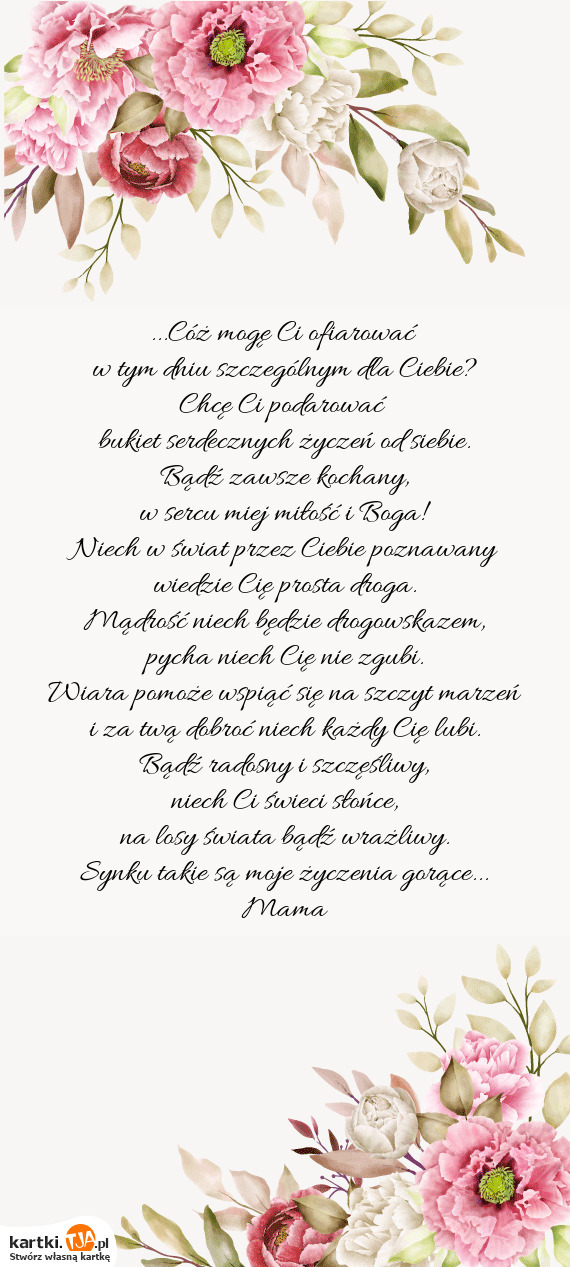 ...Cóż mogę Ci ofiarować
w tym dniu szczególnym dla Ciebie?
Chcę Ci podarować
bukiet serdecznych życzeń od siebie.
Bądź zawsze kochany,
w sercu miej miłość i Boga!
Niech w świat przez Ciebie poznawany
wiedzie Cię prosta droga.
Mądrość niech będzie drogowskazem,
pycha niech Cię nie zgubi.
Wiara pomoże wspiąć się na szczyt marzeń
i za twą dobroć niech każdy Cię lubi.
Bądź radosny i szczęśliwy,
niech Ci świeci słońce,
na losy świata bądź wrażliwy.
Synku takie są moje życzenia gorące...
Mama
kartki.TJA.pl
Stwórz własną kartkę